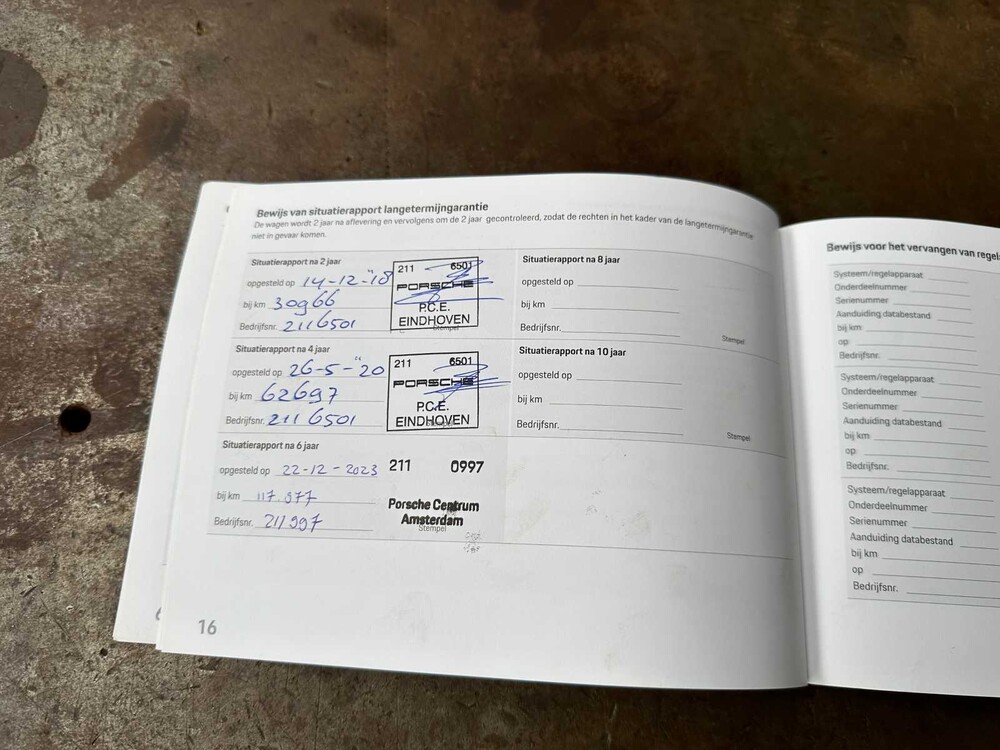 Bewijs van situatierapport langetermijngarantie
De wagen wordt 2 jaar na aflevering en vervolgens om de 2 jaar gecontroleerd, zodat de rechten in het kader van de langetermijngarantie
niet in gevaar komen.
Situatierapport na 2 jaar
opgesteld op 14-12-"18
bij km 30966
Bedrijfsnr. 2116501
211 6501
PORSCHE
P.C.E.
EINDHOVEN
Stempel
Situatierapport na 4 jaar
opgesteld op 26-5-"20
bij km 62697
Bedrijfsnr. 211 6501
211 6501
PORSCHE
P.C.E.
EINDHOVEN
Situatierapport na 6 jaar
opgesteld op 22-12-2023
bij km 117 977
Bedrijfsnr. 211997
211 0997
Porsche Centrum
Amsterdam
Stempel
Situatierapport na 8 jaar
opgesteld op
bij km
Bedrijfsnr.
Stempel
Situatierapport na 10 jaar
opgesteld op
bij km
Bedrijfsnr.
Stempel
16
Bewijs voor het vervangen van
Systeem/regelapparaat
Onderdeelnummer
Serienummer
Aanduiding databestand
bij km
op
Bedrijfsnr.
Systeem/regelapparaat
Onderdeelnummer
Serienummer
Aanduiding databestand
bij km
op
Bedrijfsnr.
Systeem/regelapparaat
Onderdeelnummer
Serienummer
Aanduiding databestand
bij km
op
Bedrijfsnr.